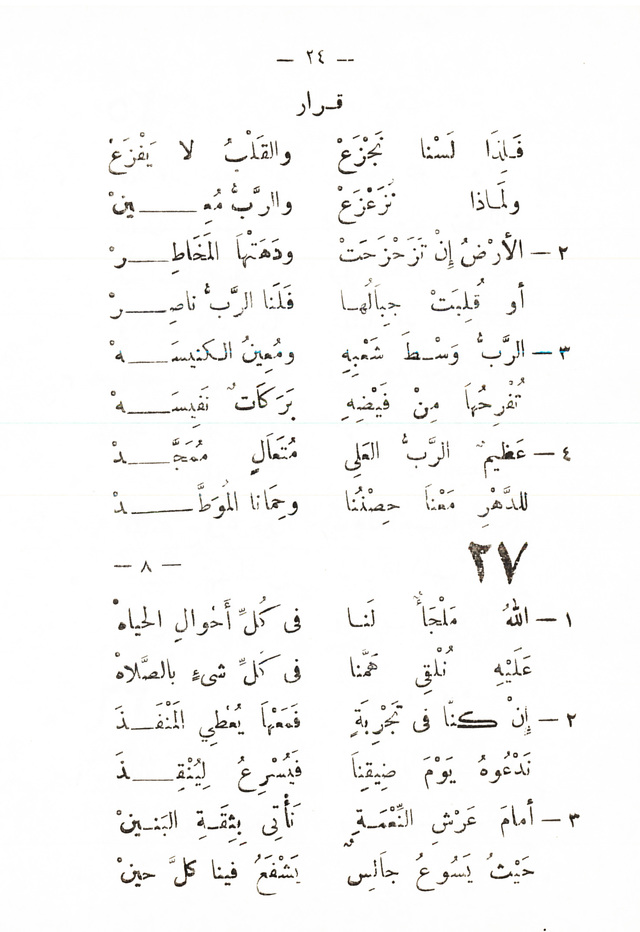 — ٢٤ —
قـرار
فَـلِذَا لَسْنا نَجْزَعْ والقَلْبُ لا يَفْزَعْ
ولَمـاذا نُزَعْزَعْ والرَّبُّ مُعِـــينْ
٢ — الأرْضُ إِنْ تَزَحْزَحَتْ ودَهَتْهَا المَخَاطِـــرْ
أو قُلِبَتْ جِبَالُهـا فَلَنا الرَّبُّ ناصِـــرْ
٣ — الرَّبُّ وَسْـطَ شَعْبِهِ ومُعِينُ الـكنِيسَـــهْ
تُفْرِحُهَا مِنْ فَيْضِهِ بَرَكَاتٌ نَفِيسَـــهْ
٤ — عَظِيمٌ الرَّبُّ العَلِى مُتَعَالٍ مُمَجَّـــدْ
للدَّهْرِ مَعْنَا حِصْنُنا وحِمَانا المُوَطَّـــدْ
٢٧
— ٨ —
١ — اللهُ مَلْجَأٌ لَنـا فى كُلِّ أَحْوالِ الحياهْ
عَلَيْهِ نُلْقِى هَمَّنا فى كُلِّ شىءٍ بالصَّلاهْ
٢ — إِنْ كنَّا فى تَجْرِبَةٍ فَمَعْهَا يُعْطِي المَنْفَـذَ
نَدْعُوهُ يَوْمَ ضِيقِنا فَيُسْرِعُ لِيُنْقِـــذَ
٣ — أمامَ عَرْشِ النِّعْمَـةِ نَأْتِى بِثِقَـةِ البَنـينْ
حَيْثُ يَسُوعُ جالِسٌ يَشْفَعُ فينا كلَّ حينْ